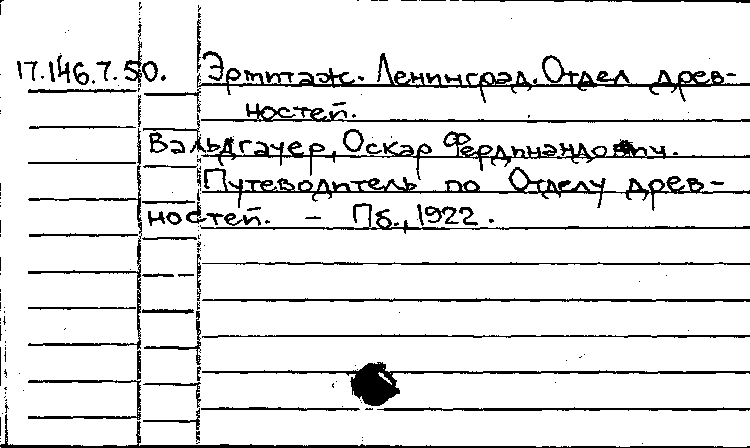 17.146.7.50. Эрмитаж. Ленинград. Отдел древ-
ностей.
Вальдгауер, Оскар Фердинандович.
Путеводитель по Отделу древ-
ностей. - Пб., 1922.